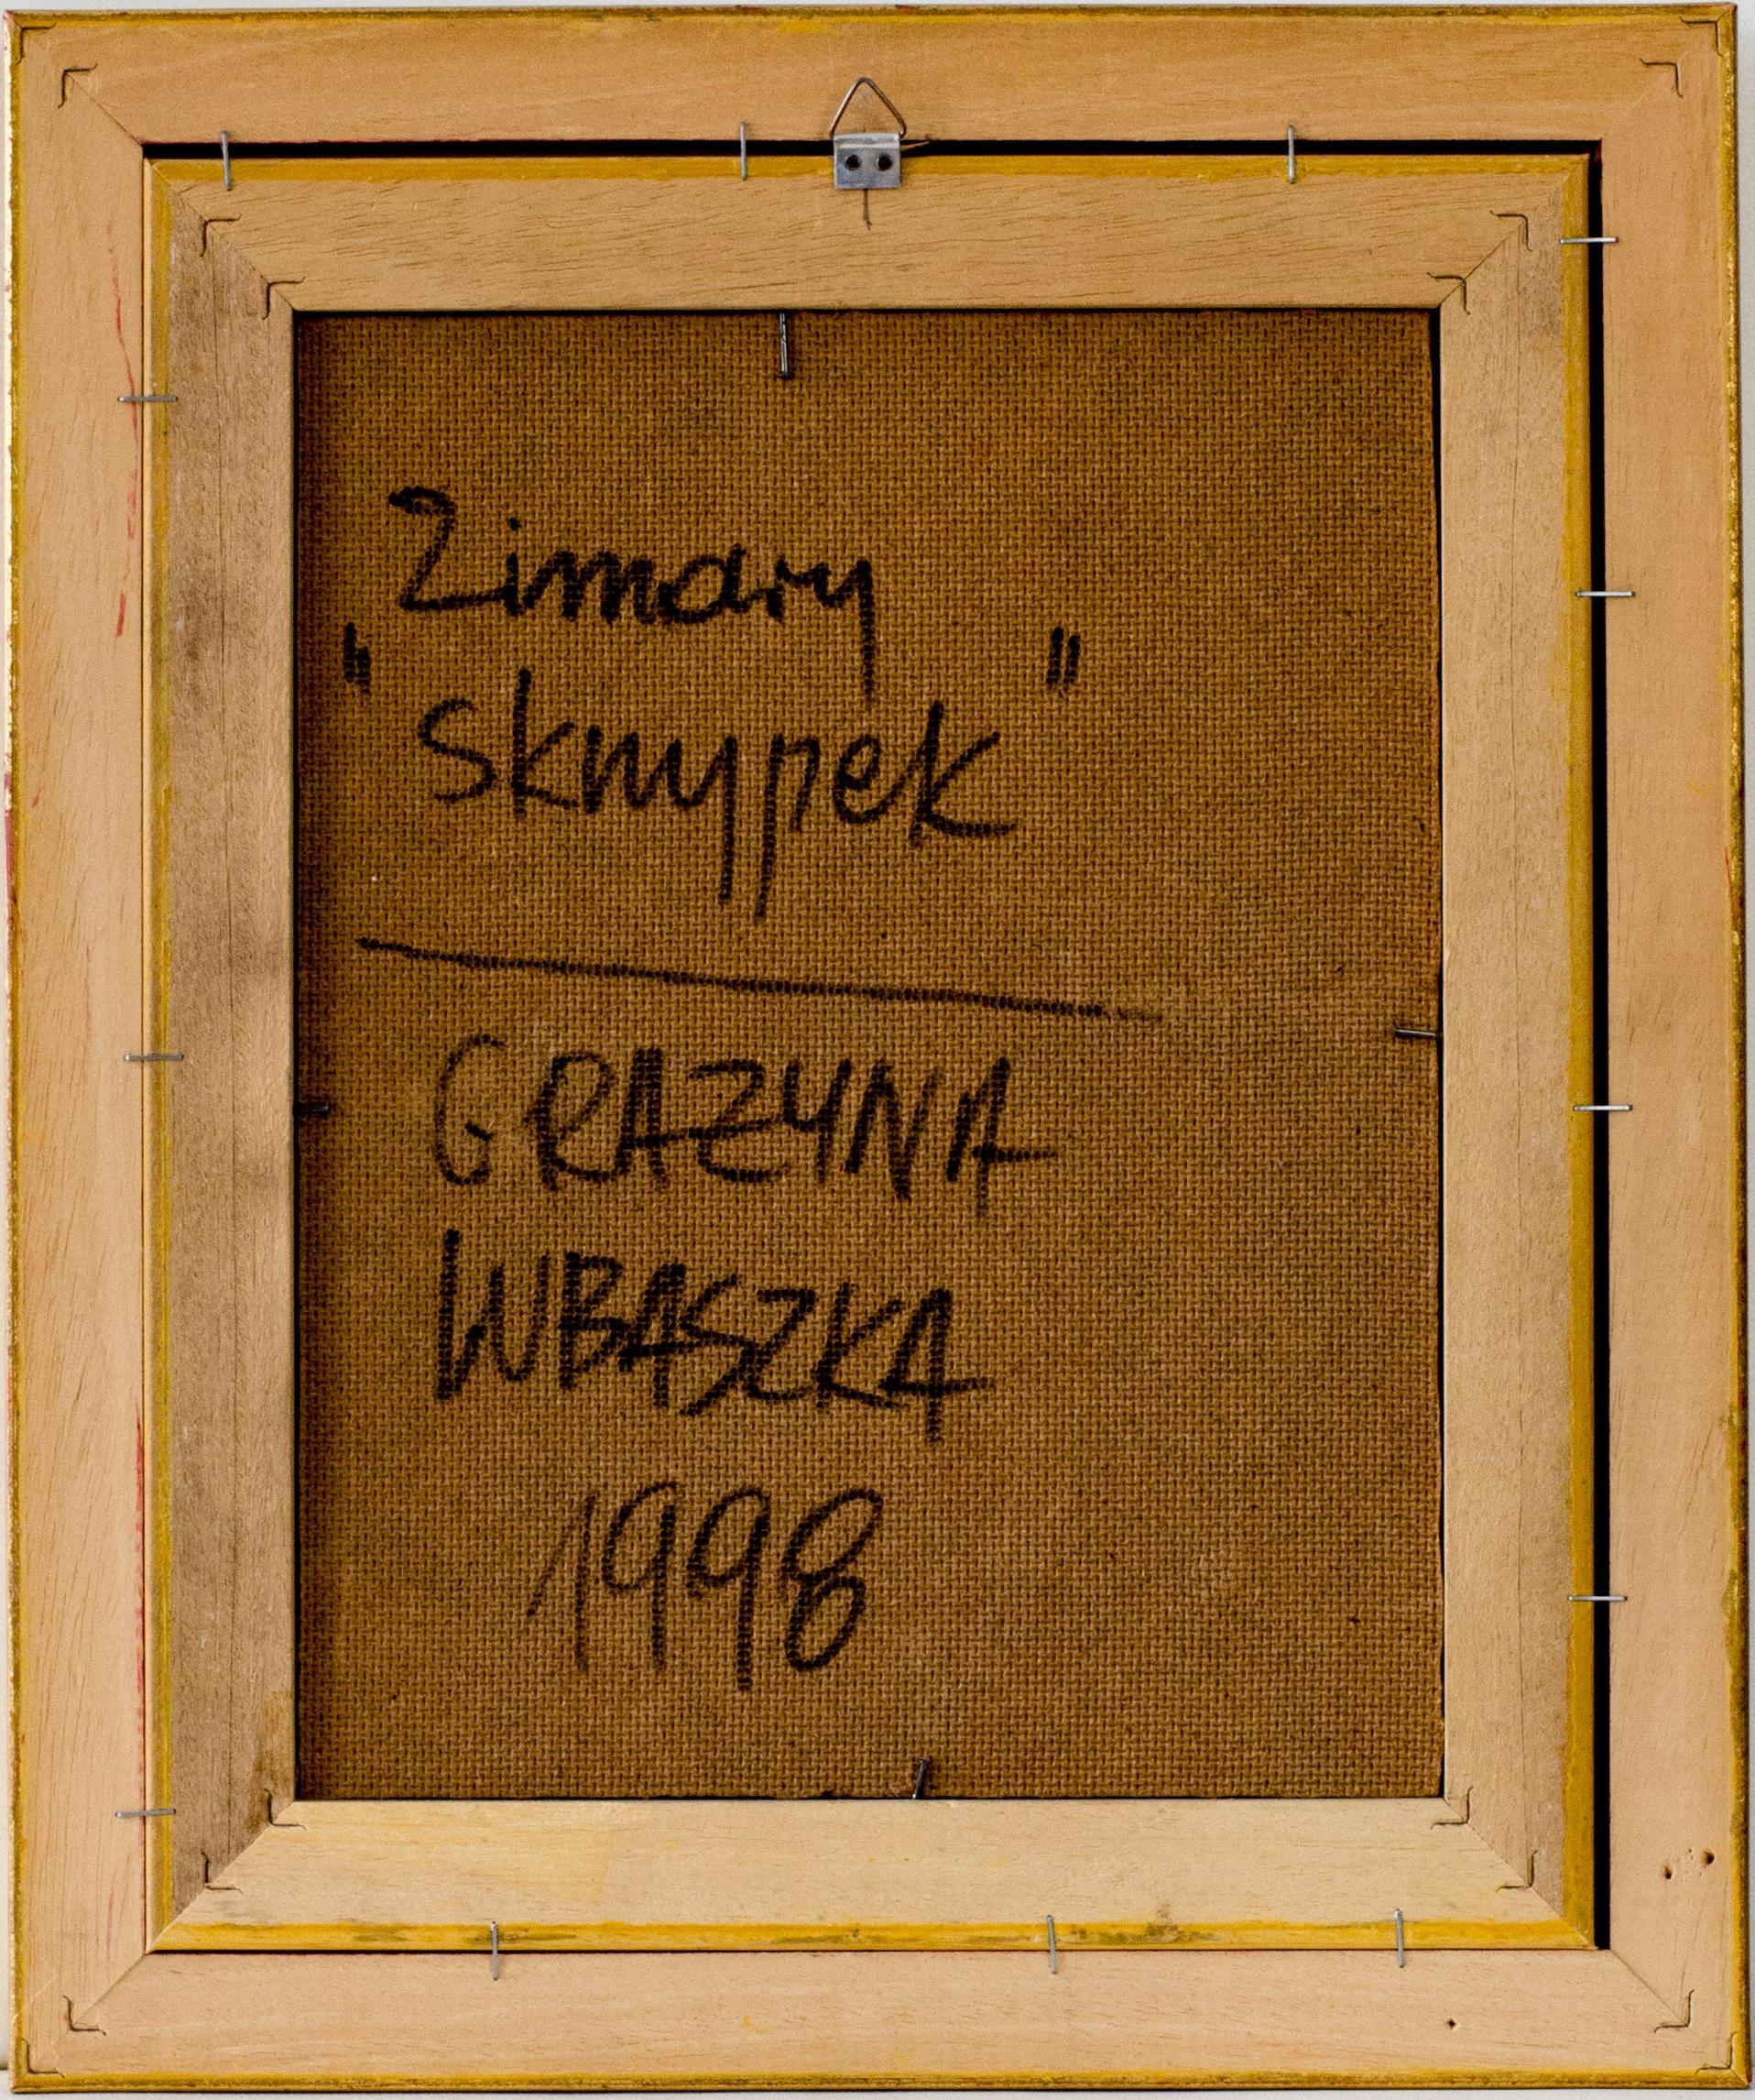 Zimowy
" skrzypek "
GRAZYNA
LUBASZKA
1998